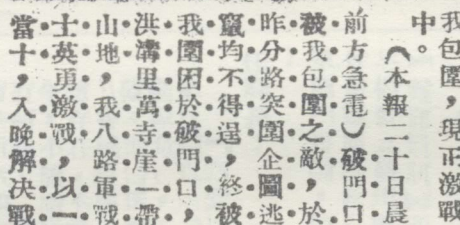 我包圍，現正激戰
中。
（本報二十日晨
前方急電）破門口
被我包圍之敵，於
昨分路突圍企圖逃
竄均不得逞，終被
我圍困於破門口，
洪溝里萬寺崖一帶
山地，我八路軍戰
士英勇激戰，以一
當十，入晚解決戰